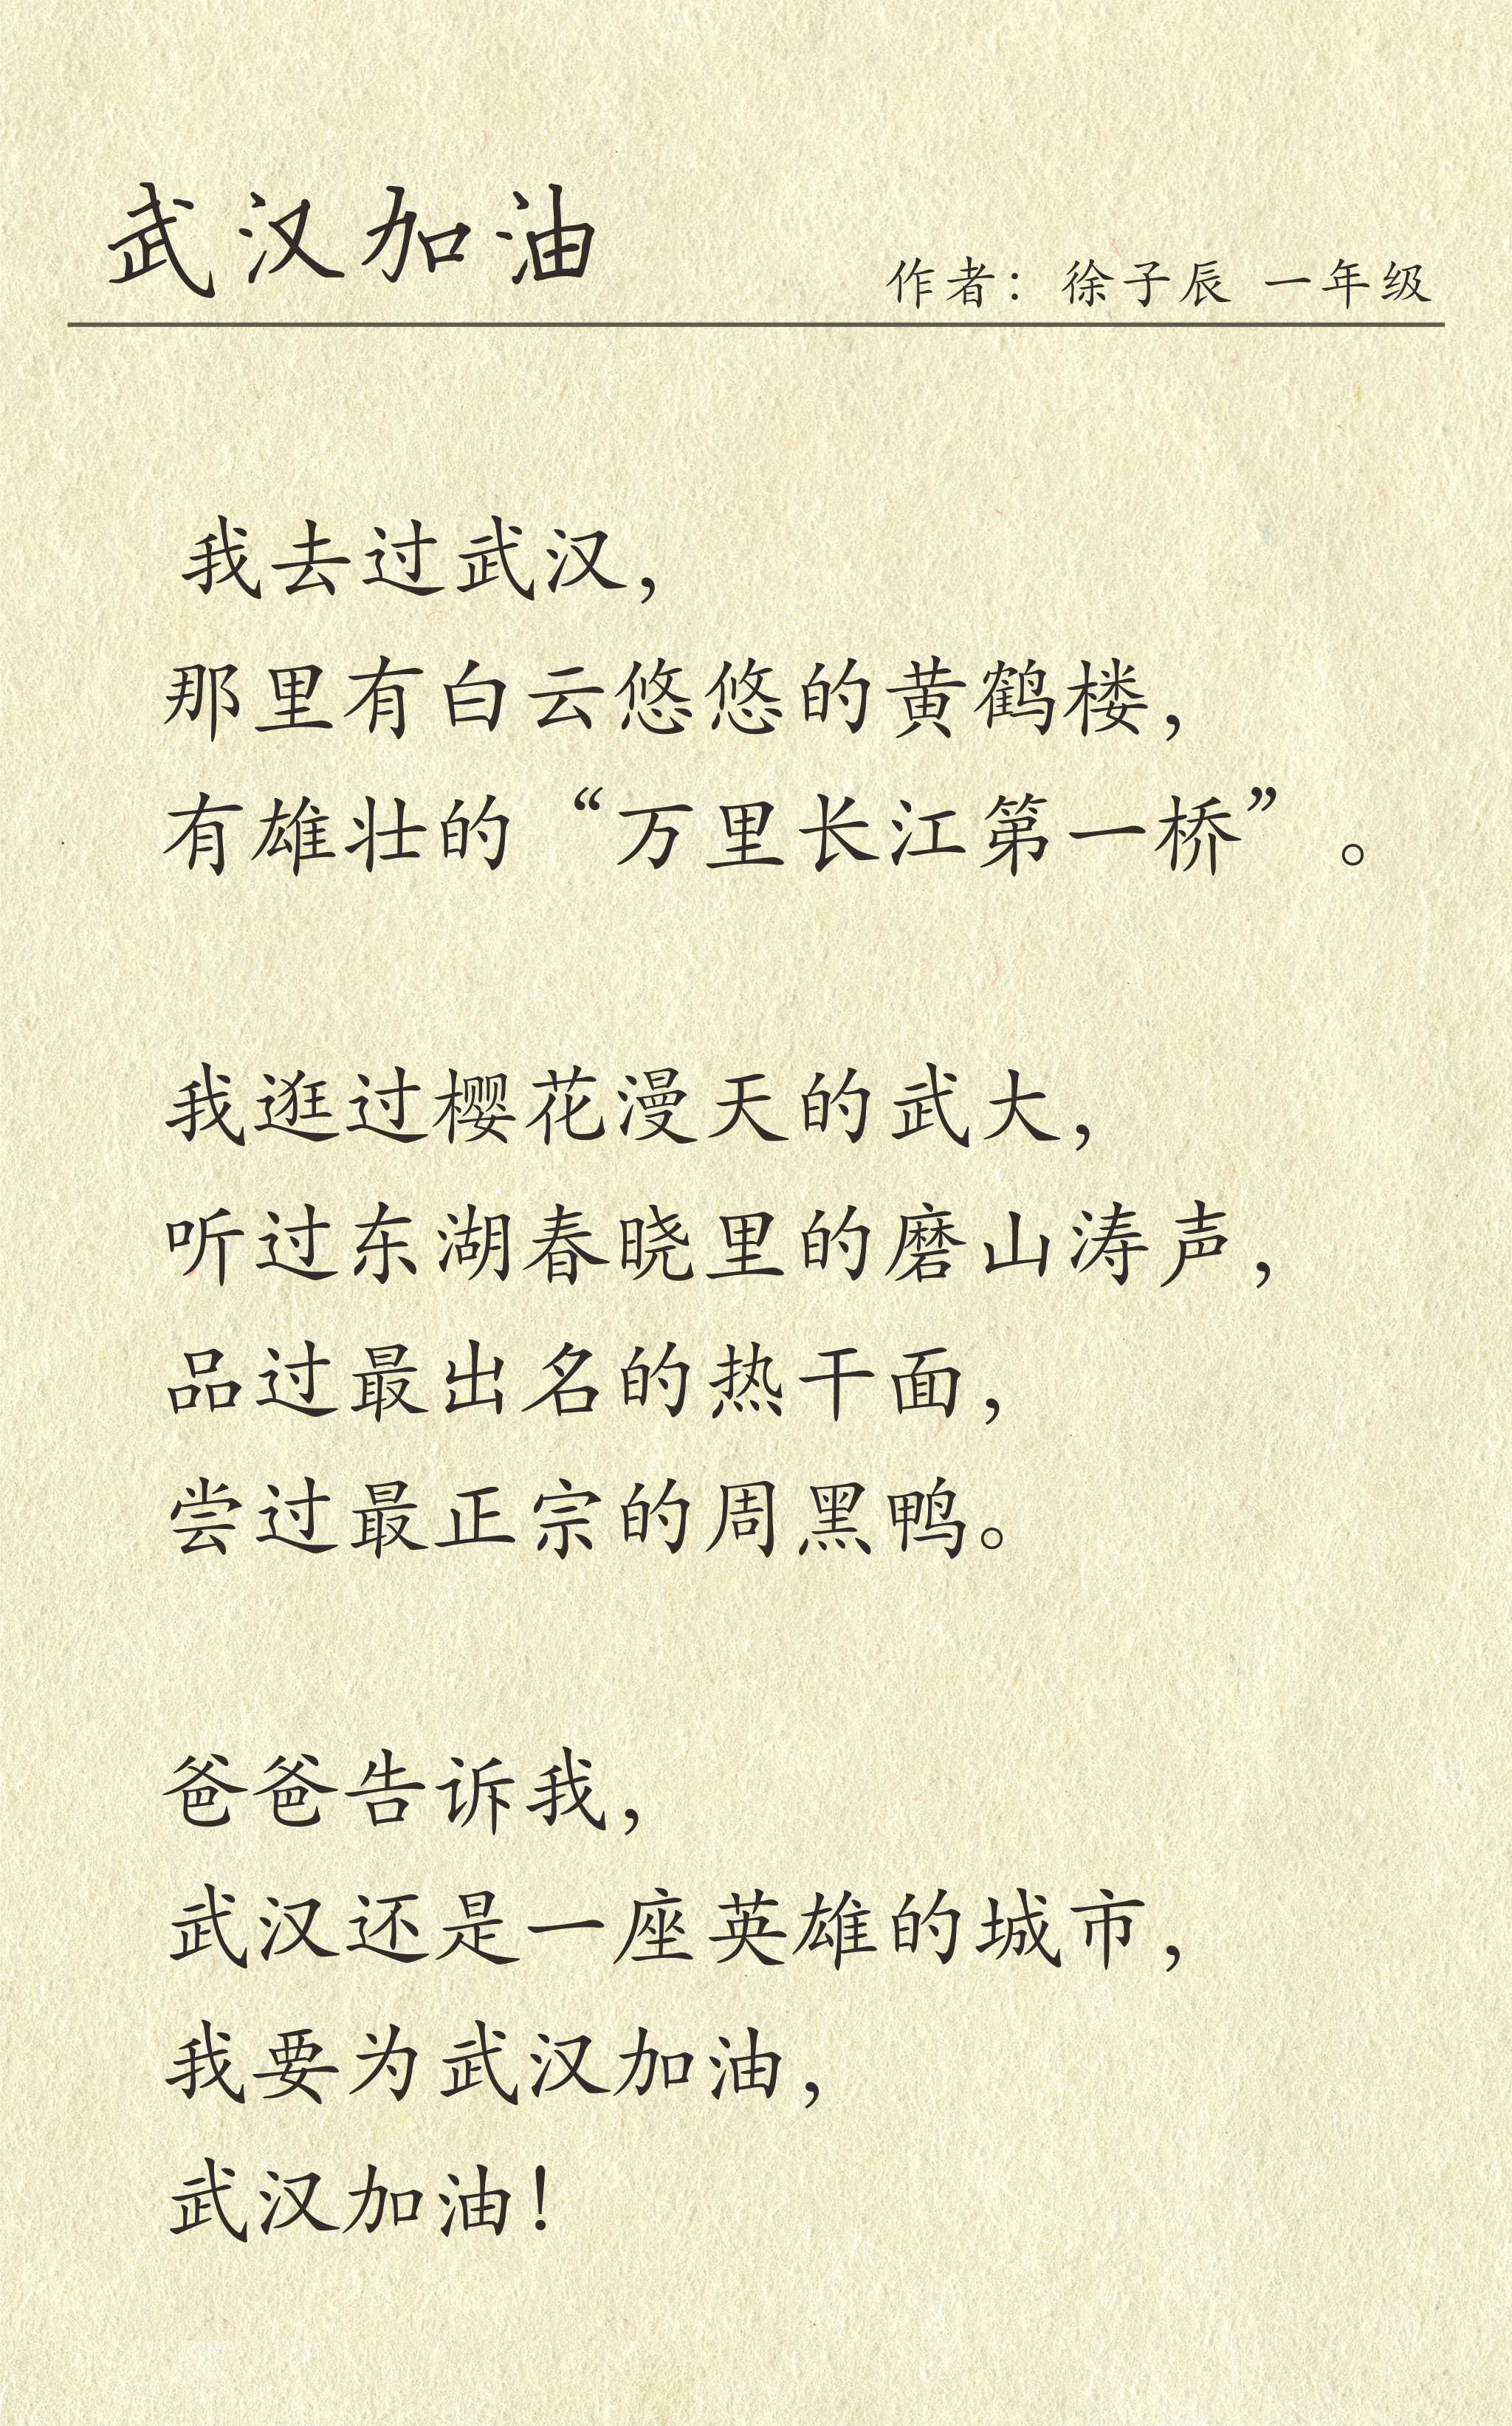 武汉加油
作者：徐子辰 一年级
我去过武汉，
那里有白云悠悠的黄鹤楼，
有雄壮的“万里长江第一桥”。
我逛过樱花漫天的武大，
听过东湖春晓里的磨山涛声，
品过最出名的热干面，
尝过最正宗的周黑鸭。
爸爸告诉我，
武汉还是一座英雄的城市，
我要为武汉加油，
武汉加油！